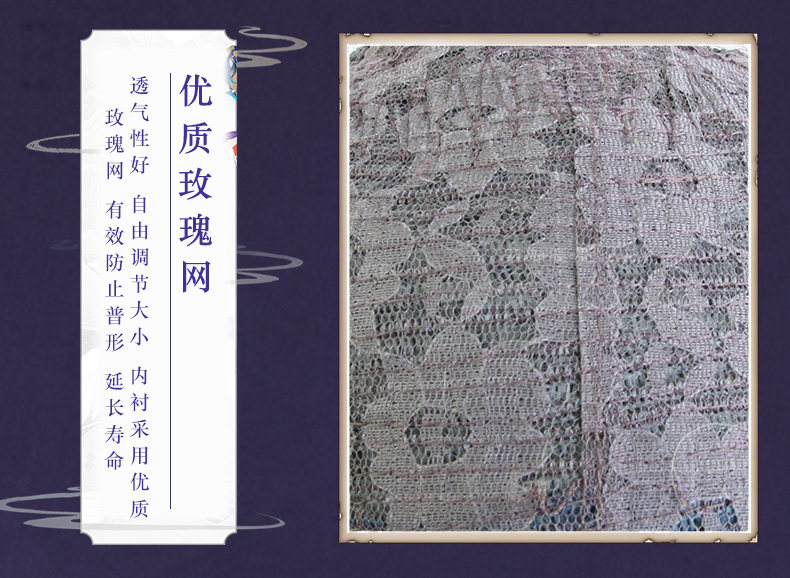 优质玫瑰网
透气性好 自由调节大小 内衬采用优质
玫瑰网 有效防止普形 延长寿命